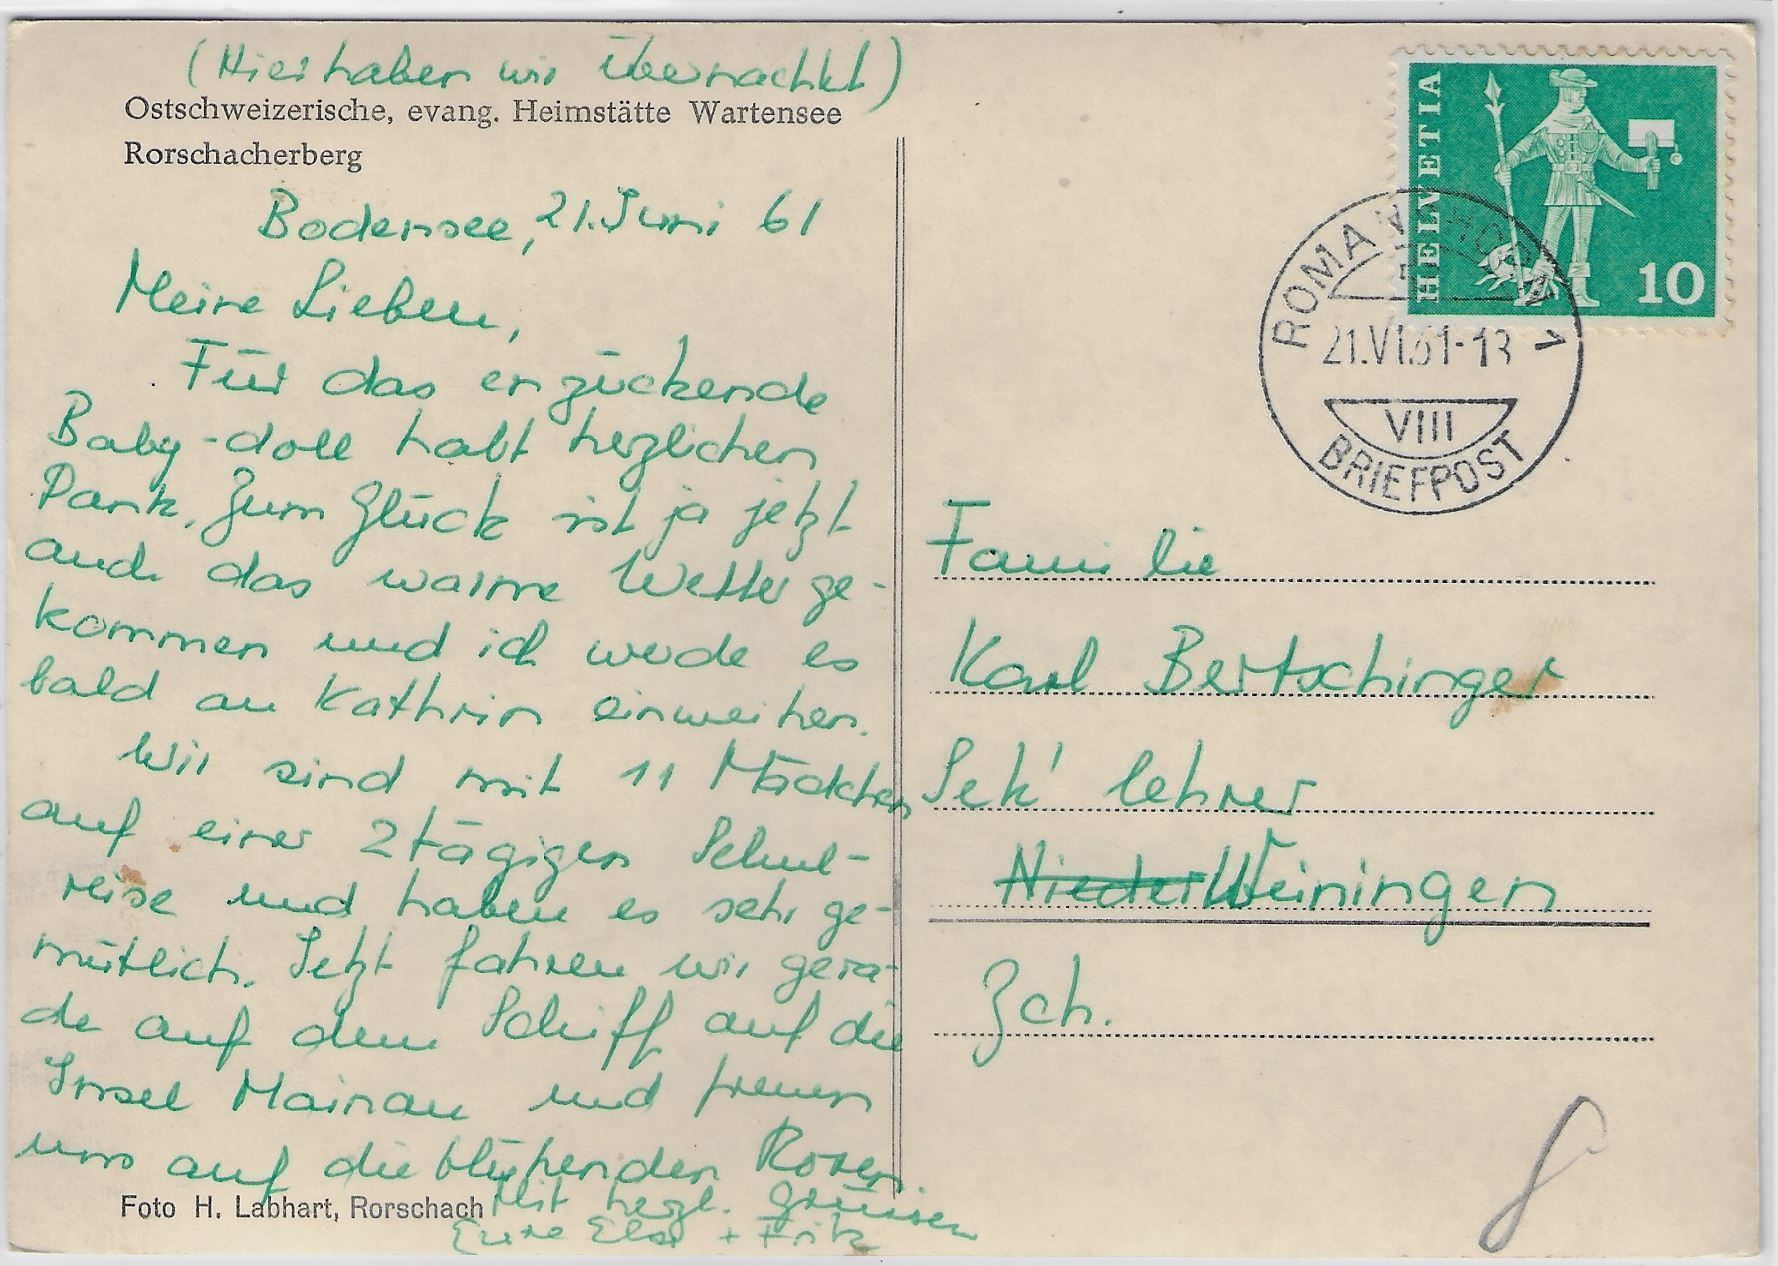 (Hier haben wir übernachtet)
Ostschweizerische, evang. Heimstätte Wartensee
Rorschacherberg
Bodensee, 21. Juni 61
Meine Lieben,
Für das enzückende
Baby-doll habt herzlichen
Dank. Zum Glück ist ja jetzt
auch das warme Wetter ge-
kommen und ich werde es
bald an Kathrin einweihen.
Wir sind mit 11 Mädchen
auf einer 2tägigen Schul-
reise und haben es sehr ge-
mütlich. Jetzt fahren wir gera-
de auf dem Schiff auf die
Insel Mainau und freuen
uns auf die blühenden Rosen
Mit herzl. Grüssen
Eure Elsi + Fritz
Foto H. Labhart, Rorschach
HELVETIA
10
ROMANSHORN 1
21.VI.61-13
VIII
BRIEFPOST
Familie
Karl Bertschinger
Sek' lehrer
Nieder Weiningen
Zch.
8